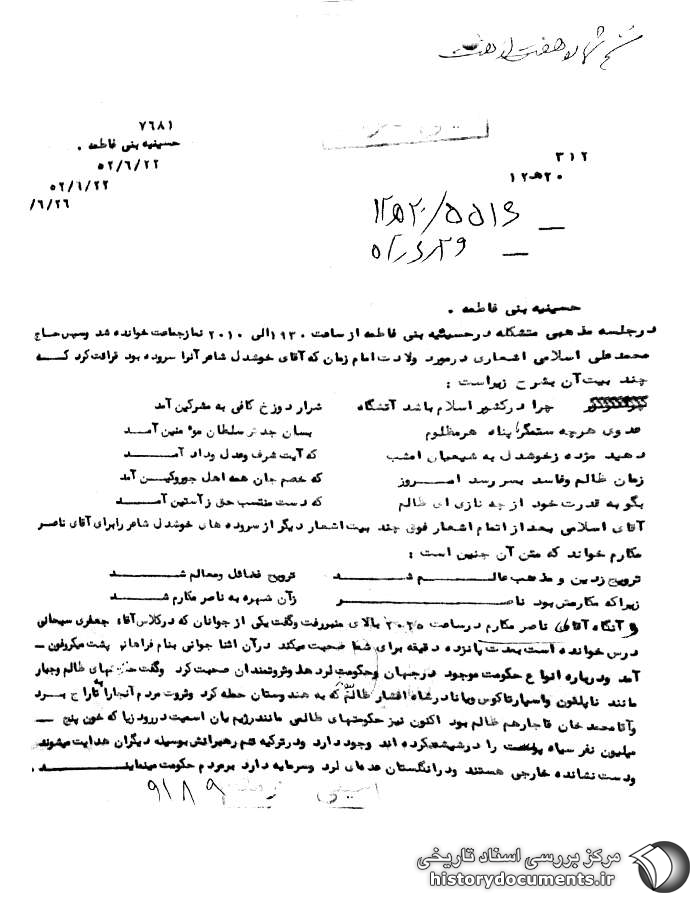 ۷۶۸۱
حسینیه بنی فاطمه .
۵۲/۶/۲۲
۵۲/۶/۲۲
/۶/۲۶
۳۱۲
۲۰ﻫ۱۲
۱۲ﻫ۲۰/۵۵۱۶
۵۲٫۶٫۲۹
حسینیه بنی فاطمه .
درجلسه مذهبی متشکله درحسینیه بنی فاطمه ازساعت ۱۹۳۰الی ۲۰۱۰ نمازجماعت خوانده شد وسپس حاج
محمدعلی اسلامی اشعاری درمورد ولادت امام زمان که آقای خوشدل شاعر آنرا سروده بود قرائت کرد که
چند بیت آن بشرح زیراست :
چرا درکشور اسلام باشد آتشگاه شرار دوزخ کافی به مشرکین آمد
عدوی هرچه ستمگر پناه هرمظلوم بسان جدتر سلطان موء منین آمد
دهید مژده زخوشدل به شیعیان امشب که آیت شرف وعدل وداد آمد
زمان ظالم وفاسد بسر رسد امروز که خصم جان همه اهل جوروکین آمد
بگو به قدرت خود ازچه نازی ای ظالم که دست منتسب حق زآستین آمد
آقای اسلامی بعداز اتمام اشعار فوق چند بیت اشعار دیگر از سروده های خوشدل شاعر رابرای آقای ناصر
مکارم خواند که متن آن چنین است :
ترویج زدین و مذهب عالم شد ترویج فضائل ومعالم شد
زیراکه مکارمش بود ناصر زآن شهره به ناصر مکارم شد
و آنگاه آقای ناصر مکارم درساعت ۲۰۲۵ بالای منبررفت وگفت یکی از جوانان که درکلاس آقای جعفری سبحانی
درس خوانده است بمدت پانزده دقیقه برای شما صحبت میکند درآن اثنا جوانی بنام فراهانی پشت میکروفون
آمد ودرباره انواع حکومت موجود درجهان وحکومت لردها وثروتمندان صحبت کرد وگفت حکومتهای ظالم وجبار
مانند ناپلئون واسپارتاکوس ویا نادرشاه افشار ظالم که به هندوستان حمله کرد وثروت مردم آنجارا تاراج برد
وآقامحمد خان قاجارهم ظالم بود اکنون نیز حکومتهای ظالمی مانندرژیم یان اسمیت دررودزیا که خون پنج
میلیون نفر سیاه پوست را درشیشه کرده اند وجود دارد ودرترکیه هم رهبرانش بوسیله دیگران هدایت میشوند
ودست نشانده خارجی هستند ودرانگلستان عده ای لرد وسرمایه دارد برمردم حکومت مینمایند .
۹۱۸۹
مرکز بررسی اسناد تاریخی
historydocuments.ir